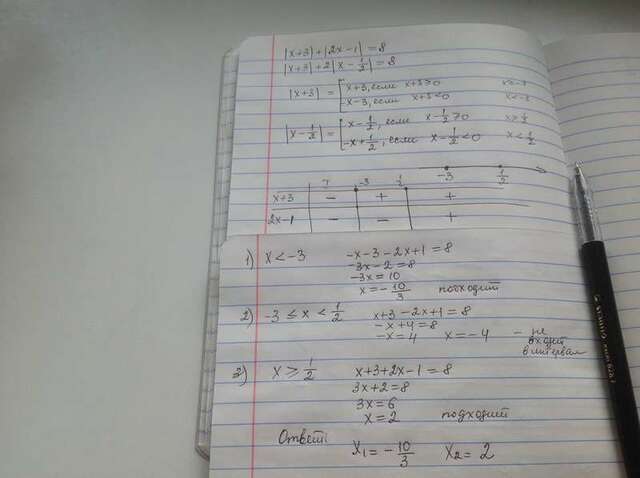 |x+3|+|2x-1|=8
|x+3|+2|x-1/2|=8
|x+3| = [x+3, если x+3≥0 x≥-3
x-3, если x+3<0 x<-3
|x-1/2| = [x-1/2, если x-1/2≥0 x≥1/2
-x+1/2, если x-1/2<0 x<1/2
-3 1/2
-3 1/2
x+3 - + +
2x-1 - - +
1) x<-3 -x-3-2x+1=8
-3x-2=8
-3x=10
x=-10/3 подходит
2) -3≤x<1/2 x+3-2x+1=8
-x+4=8
-x=4 x=-4 - не входит в интервал
3) x≥1/2 x+3+2x-1=8
3x+2=8
3x=6
x=2 подходит
Ответ: x₁=-10/3 x₂=2